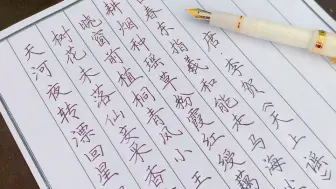 天河夜转漂回星
树花未落仙妾采香
晓窗前植桐青凤小王
耕烟种瑶草粉霞红绶藕
春东指羲和能走马海
唐·李贺《天上谣